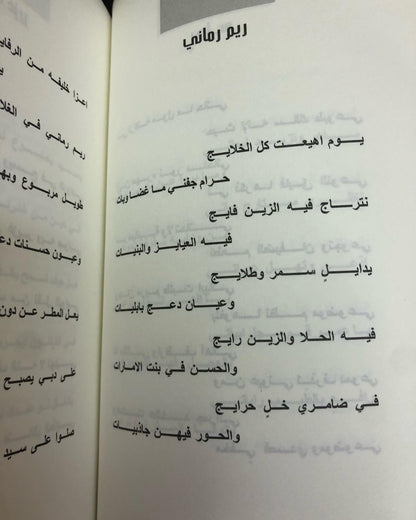 ريم رماني
يوم اهيعت كل الخلايج
حرام جفني ما غضا وبات
نتراج فيه الزين فايج
فيه العيايز والبنيات
يدايلٍ سمر وطلايج
وعيان دعج بابليات
فيه الحلا والزين رايج
والحسن في بنت الامارات
في ضامري خلٍ حرايج
والحور فيهن جاذبيات
اعزا خليفه من الرفاي
ريم رماني في الغلا
طويل مربوع وبه
وعيون حسنات دع
يعل المطر عن دون
على دبي يصبح
صلوا على سيد